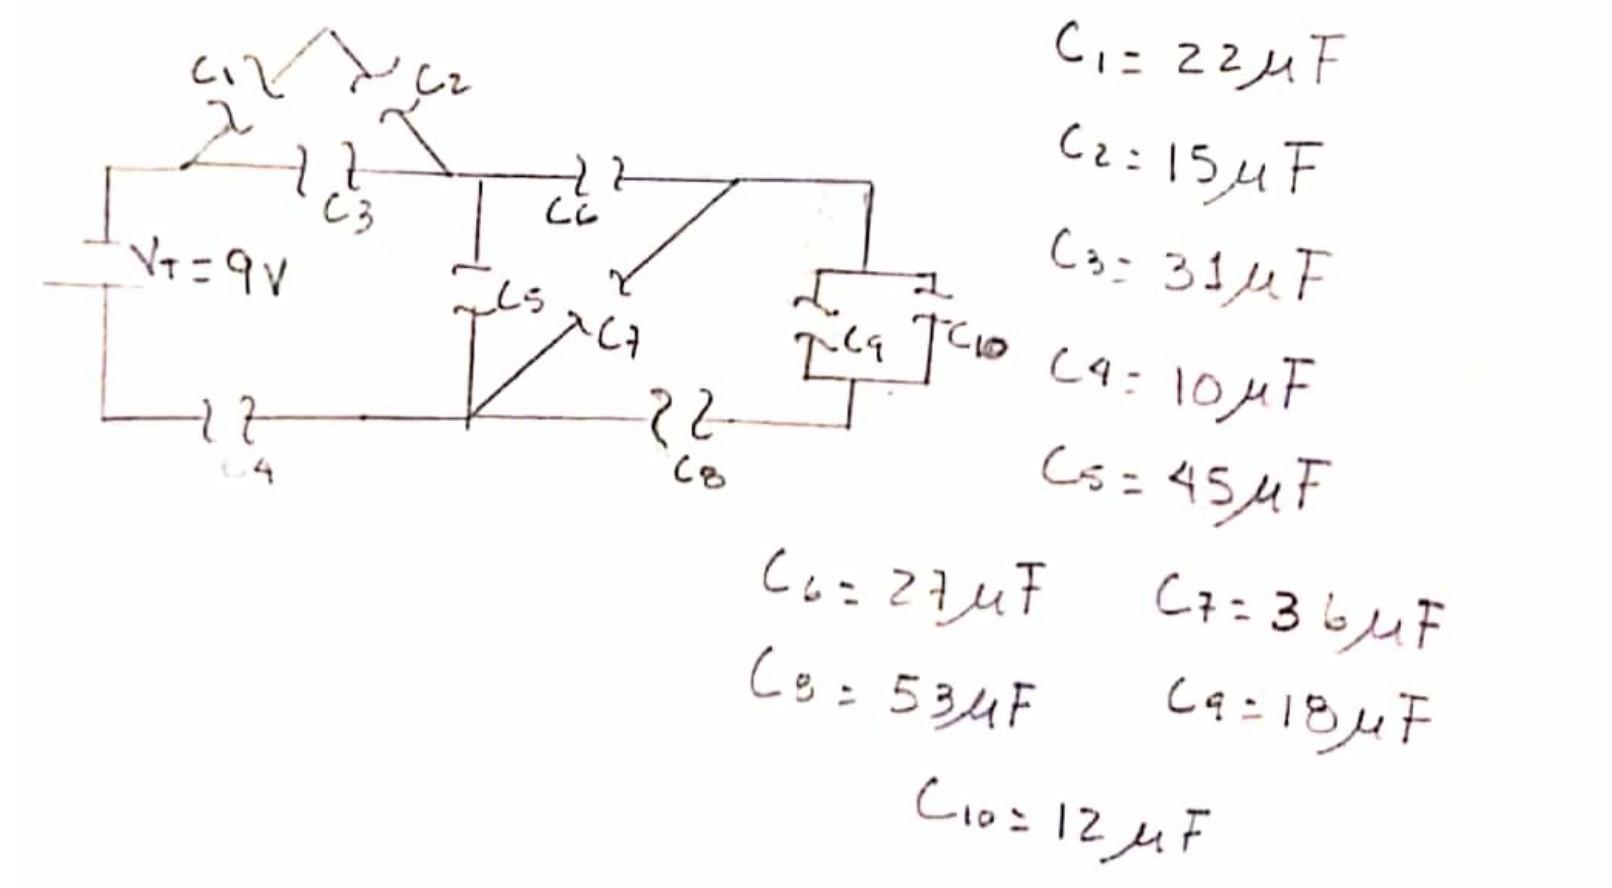 C1
C2
C3
C6
VT=9V
C5
C7
C9
C10
C4
C8
C1= 22μF
C2= 15μF
C3= 31μF
C4= 10μF
C5= 45μF
C6= 27μF
C7= 36μF
C8= 53μF
C9= 18μF
C10= 12μF